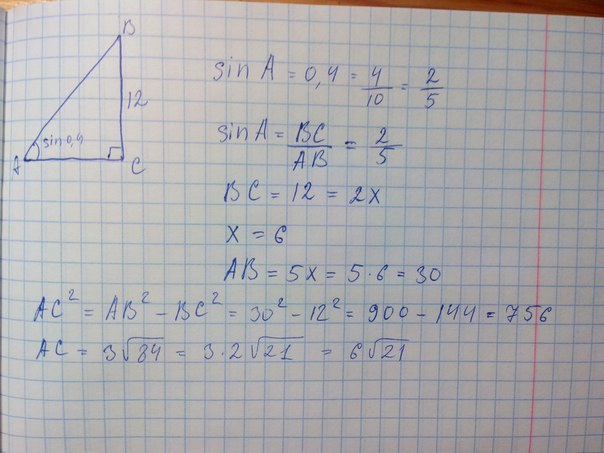 B
12
sin 0,4
A
C
sin A = 0,4 = 4/10 = 2/5
sin A = BC/AB = 2/5
BC = 12 = 2x
x = 6
AB = 5x = 5·6 = 30
AC² = AB² − BC² = 30² − 12² = 900 − 144 = 756
AC = 3√84 = 3·2√21 = 6√21